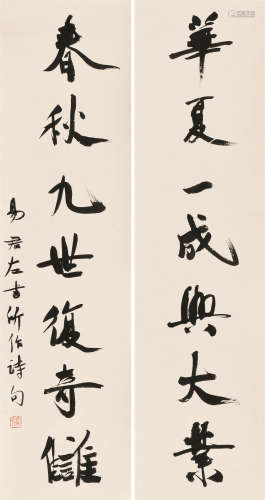 華夏一成興大業
春秋九世復奇讎
易君左書所作詩句